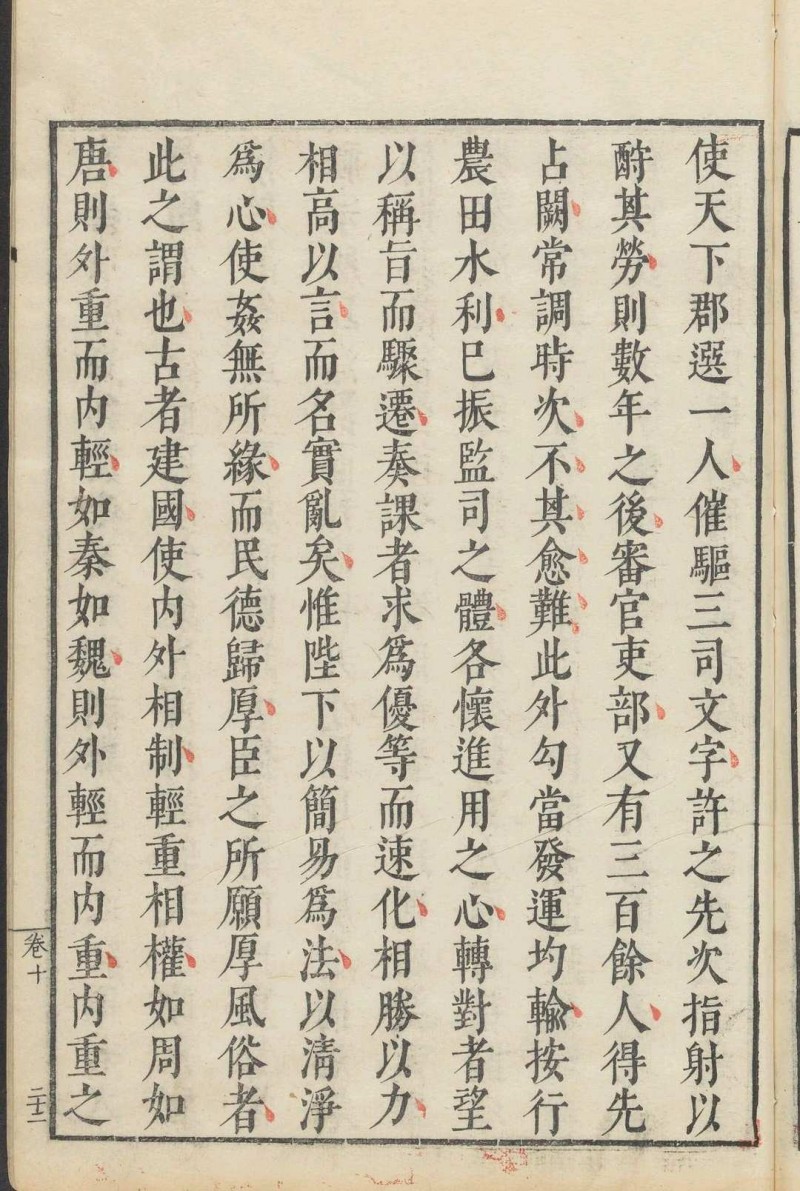 使天下郡選一人催驅三司文字許之先次指射以
酧其勞則數年之後審官吏部又有三百餘人得先
占闕常調時次不其愈難此外勾當發運均輸按行
農田水利巳振監司之體各懷進用之心轉對者望
以稱旨而驟遷奏課者求爲優等而速化相勝以力
相高以言而名實亂矣惟陛下以簡易爲法以淸淨
爲心使姦無所緣而民德歸厚臣之所願厚風俗者
此之謂也古者建國使內外相制輕重相權如周如
唐則外重而內輕如秦如魏則外輕而內重內重之
卷十
二十二